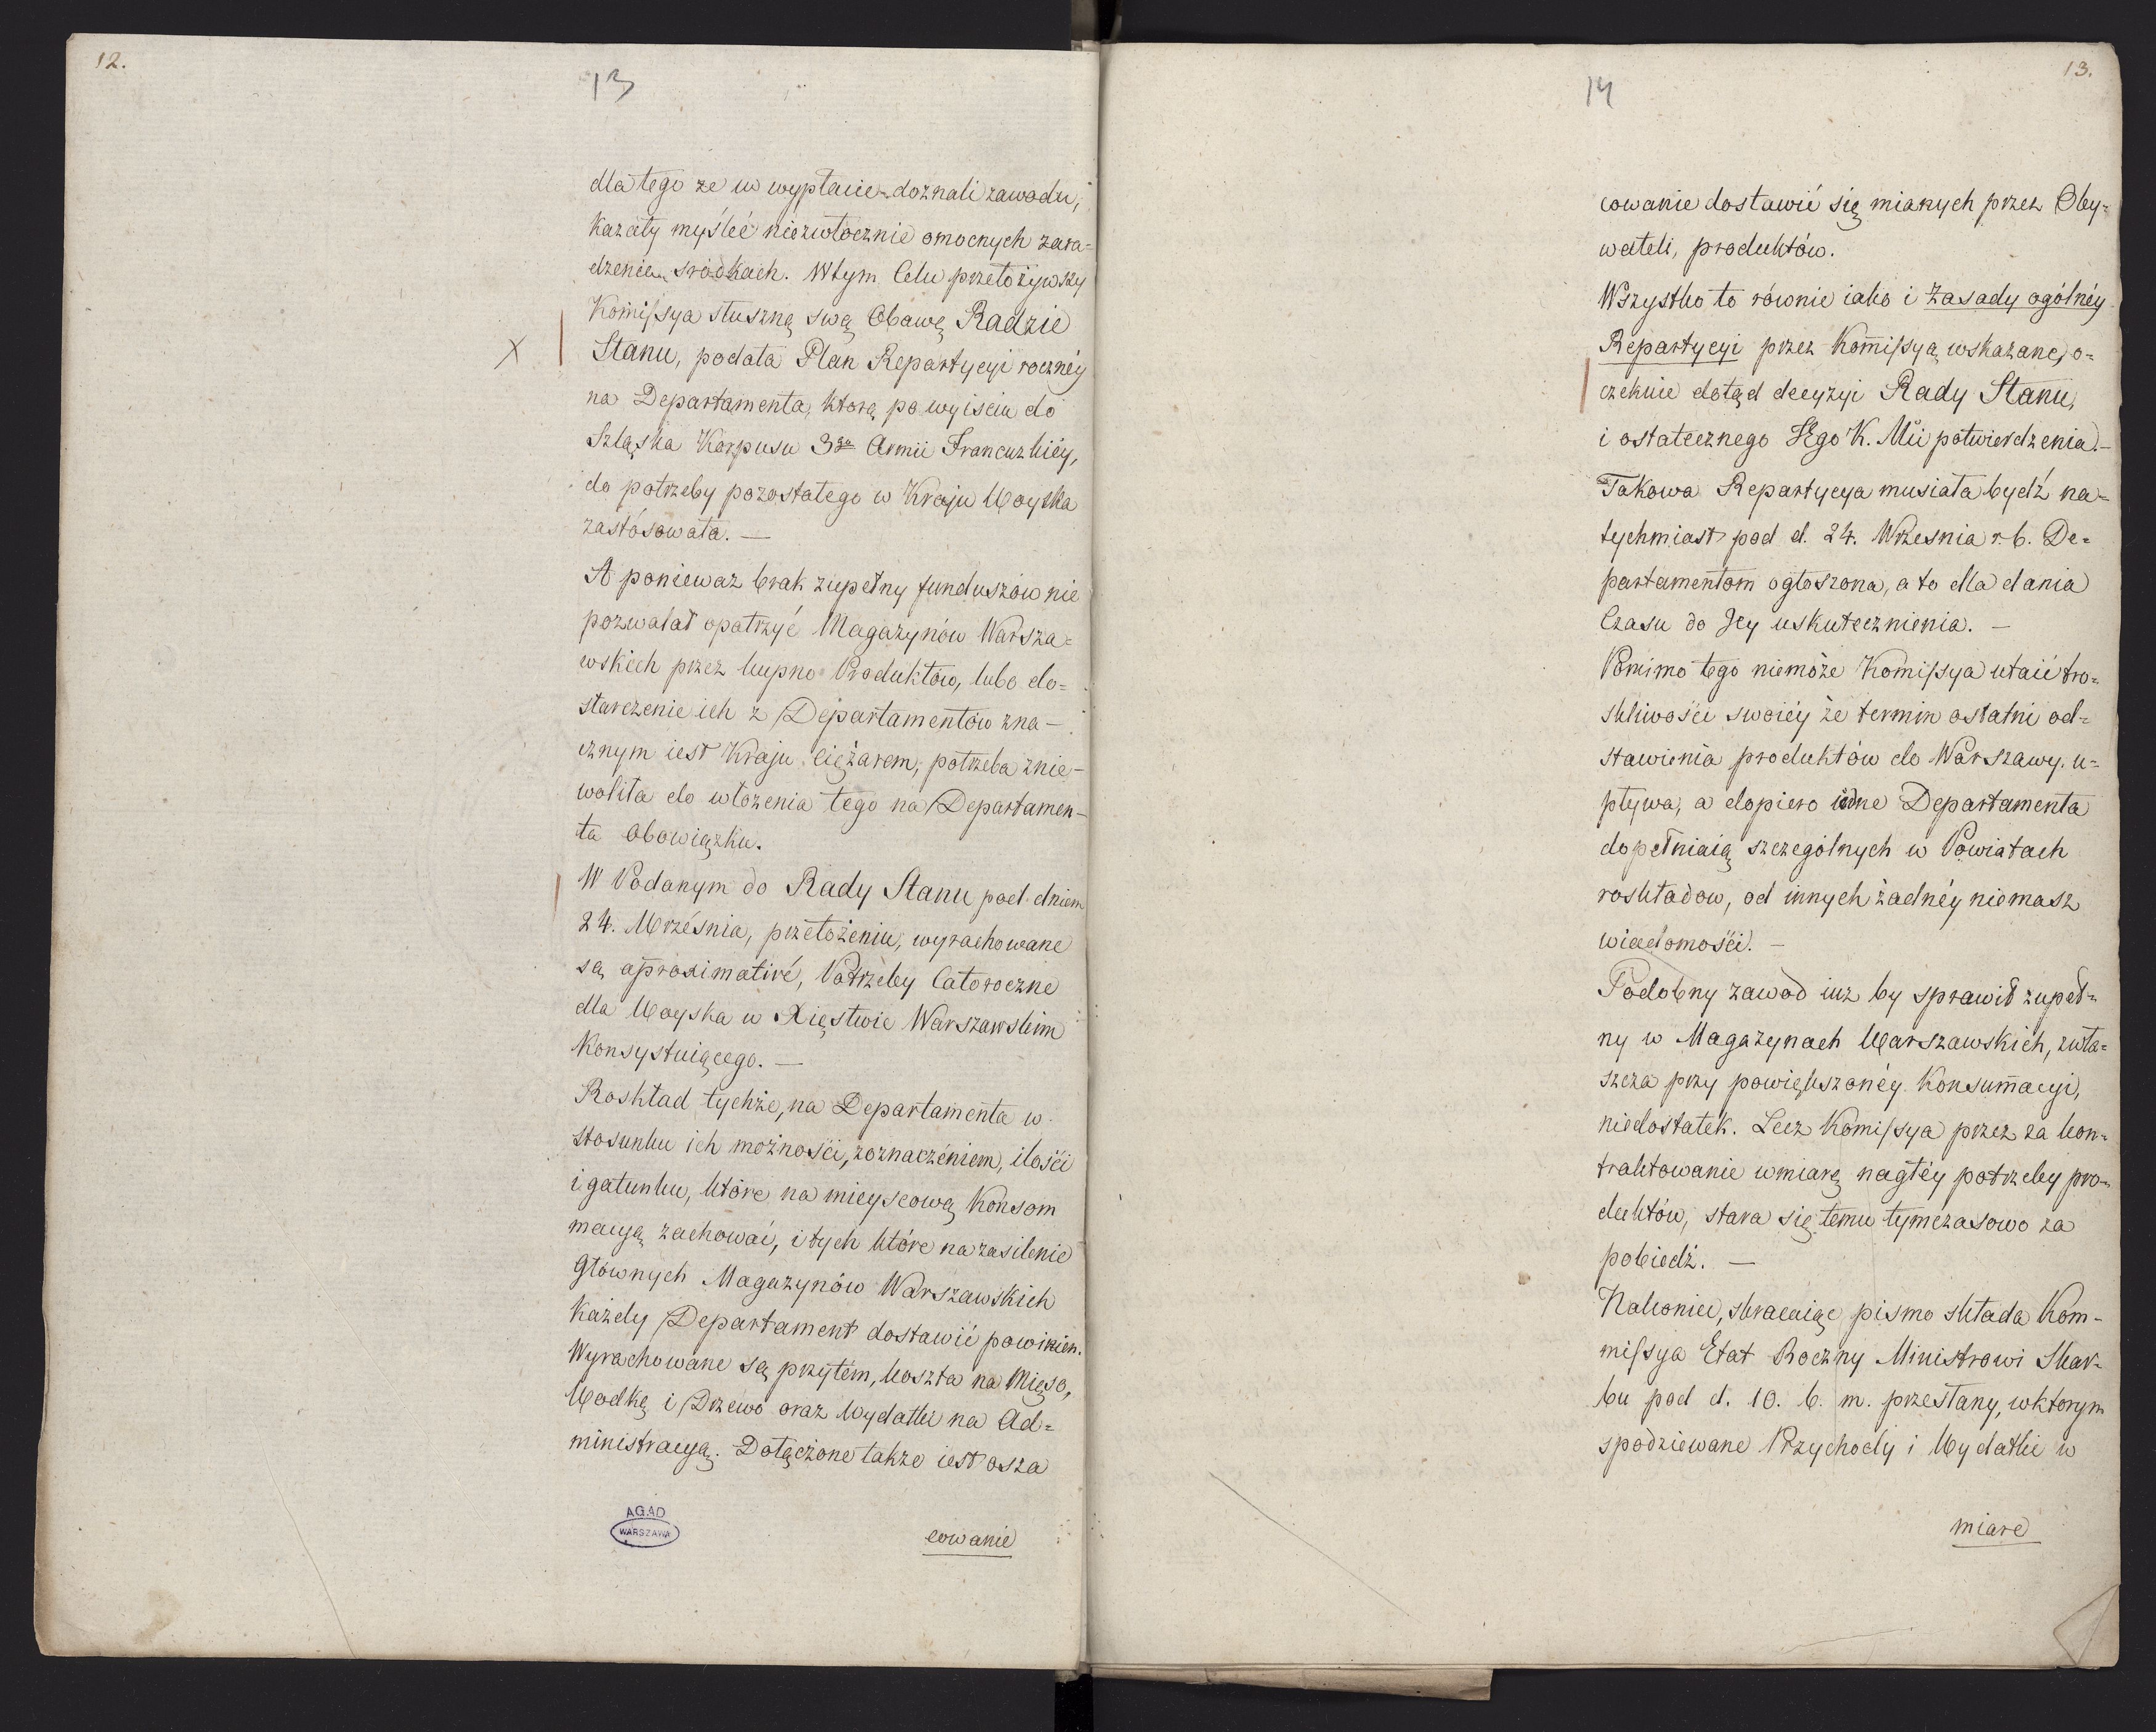 12.
13
dla tego ze w wypłacie doznali zawodu,
kazały myśleć niezwłocznie o mocnych zara=
dzenia srodkach. W tym Celu przełożywszy
Kom̄issya słuszną swą Obawę Radzie
X Stanu, podała Plan Repartycyi rocznéy
na Departamenta, ktorą po wyiściu do
Szląska Korpusu 3go Armii Francuzkiéy,
do potrzeby pozostałego w Kraju Woyska
zastósowała. —
A poniewaz brak zupełny funduszów nie
pozwalał opatrzyć Magazynów Warsza=
wskich przez kupno Produktów, lubo do=
starczenie ich z Departamentów zna—
cznym iest Kraju ciężarem, potrzeba znie—
woliła do włożenia tego na Departamen—
ta Obowiązku.
W Podanym do Rady Stanu pod dniem
24. Września, przełożeniu, wyrachowane
są aproximativé, Potrzeby Całoroczne
dla Woyska w Xięstwie Warszawskim
Konsystuiącego. —
Roskład tychże, na Departamenta w
stosunku ich możności, z oznaczéniem, ilości
i gatunku, które na mieyscową Konsom
macyą zachować, i tych które na zasilenie
Głównych Magazynów Warszawskich
Każdy Departament dostawić powinien.
Wyrachowane są przytém, koszta na Mięso,
Wodkę i Drzewo oraz wydatki na Ad=
ministracyą. Dołączone takze iest osza
AGAD
WARSZAWA
cowanie
13.
14
cowanie dostawić się mianych przez Oby=
wateli, produktów.
Wszystko to równie iako i Zasady ogólnéy
Repartycyi przez Kom̄issyą wskazane, o=
czekuie dotąd decyzyi Rady Stanu,
i ostatecznego JEgo K. Mci potwierdzenia. —
Takowa Repartycya musiała bydź na=
tychmiast pod d. 24. Wrzesnia r. b. De=
partamentom ogłoszona, a to dla dania
Czasu do Jey uskutecznienia. —
Pomimo tego niemoże Komissya utaić tro=
skliwości swoiéy że termin ostatni od=
stawienia produktów do Warszawy u=
pływa, a dopiero iedne Departamenta
dopełniaią szczególnych w Powiatach
roskładow, od innych żadnéy niemasz
wiadomości. —
Podobny zawod iuz by sprawił zupeł=
ny w Magazynach Warszawskich, zwła=
szcza przy powiększonéy Konsum̄acyi,
niedostatek. Lecz Komissya przez za kon=
traktowanie w miarę nagłéy potrzeby pro=
duktów, stara się temu tymczasowo za
pobiedź. —
Nakoniec, skracaiąc pismo składa Kom—
missya Etat Roczny Ministrowi Skar=
bu pod d. 10. b. m. przesłany, w ktorym
spodziewane Przychody i Wydatki w
miare